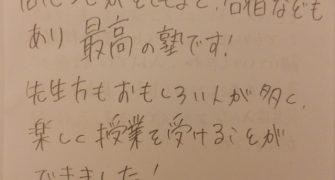 合宿なども
あり 最高の塾です!
先生方もおもしろい人が多く、
楽しく授業を受けることが
できました!